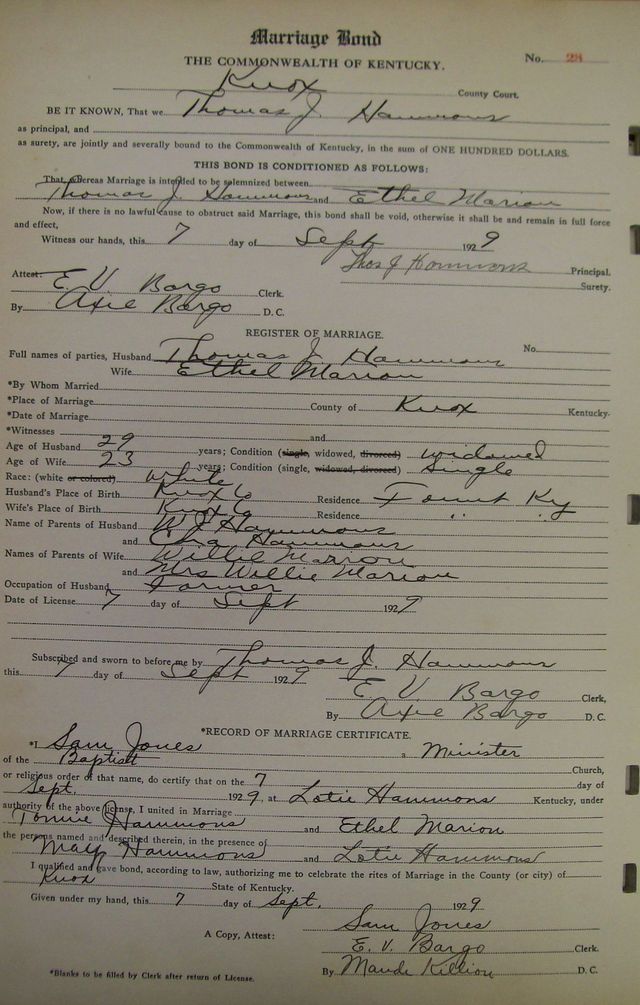 Marriage Bond
THE COMMONWEALTH OF KENTUCKY.
No. 28
Knox County Court.
BE IT KNOWN, That we Thomas J. Hammons
as principal, and
as surety, are jointly and severally bound to the Commonwealth of Kentucky, in the sum of ONE HUNDRED DOLLARS.
THIS BOND IS CONDITIONED AS FOLLOWS:
That whereas Marriage is intended to be solemnized between
Thomas J. Hammons and Ethel Marion
Now, if there is no lawful cause to obstruct said Marriage, this bond shall be void, otherwise it shall be and remain in full force
and effect,
Witness our hands, this 7 day of Sept 1929
Thos J Hammons Principal.
Surety.
Attest: E. V. Bargo Clerk.
By Axie Bargo D. C.
REGISTER OF MARRIAGE.
No.
Full names of parties, Husband Thomas J. Hammons
Wife Ethel Marion
*By Whom Married
*Place of Marriage County of Knox Kentucky.
*Date of Marriage
*Witnesses and
Age of Husband 29 years; Condition (single, widowed, divorced) widowed
Age of Wife 23 years; Condition (single, widowed, divorced) single
Race: (white or colored) white
Husband's Place of Birth Knox Co Residence Fount Ky
Wife's Place of Birth Knox Co Residence " "
Name of Parents of Husband W J Hammons
and Hammons
Names of Parents of Wife Willie Marion
and Mrs Willie Marion
Occupation of Husband Farmer
Date of License 7 day of Sept 1929
Subscribed and sworn to before me by Thomas J. Hammons
this 7 day of Sept 1929
E. V. Bargo Clerk,
By Axie Bargo D. C.
*RECORD OF MARRIAGE CERTIFICATE.
*I Sam Jones a Minister
of the Baptist Church,
or religious order of that name, do certify that on the 7 day of
Sept. 1929, at Lotie Hammons Kentucky, under
authority of the above license, I united in Marriage
Tommie Hammons and Ethel Marion
the persons named and described therein, in the presence of
Mary Hammons and Lotie Hammons
I qualified and gave bond, according to law, authorizing me to celebrate the rites of Marriage in the County (or city) of
Knox State of Kentucky.
Given under my hand, this 7 day of Sept. 1929
Sam Jones
A Copy, Attest: E. V. Bargo Clerk.
By Maude Killion D. C.
*Blanks to be filled by Clerk after return of License.